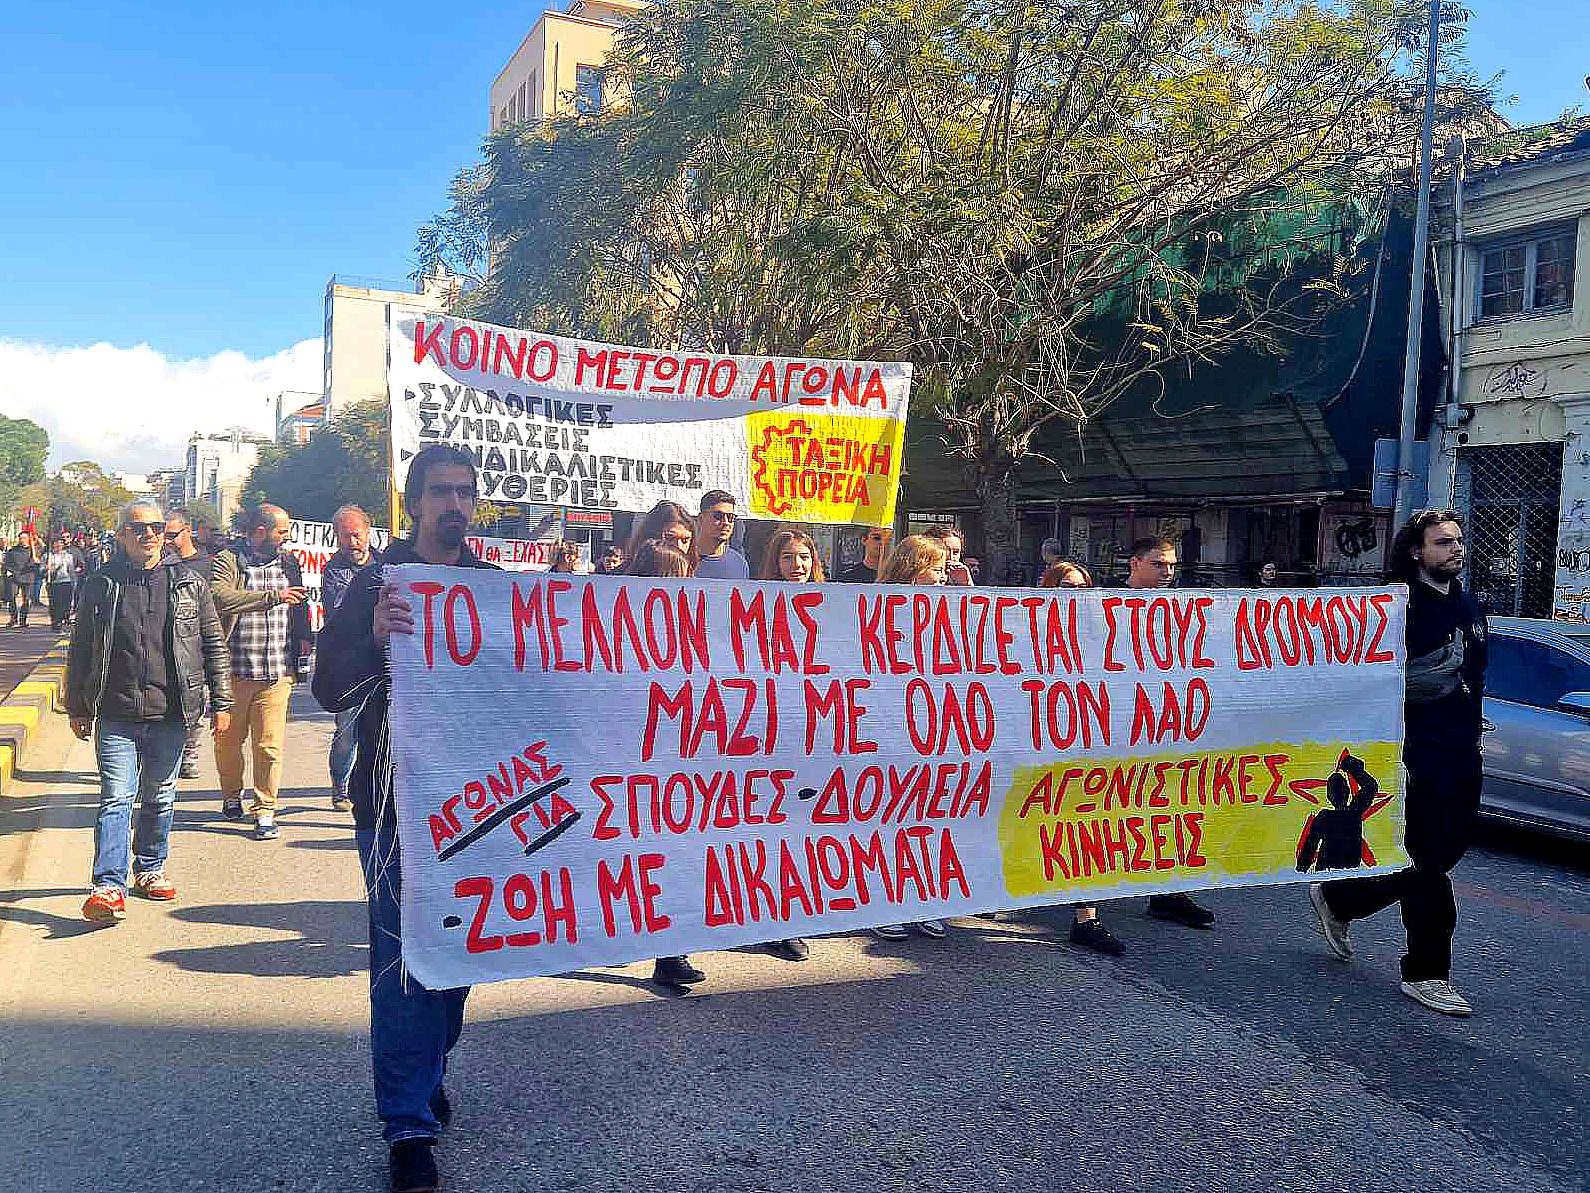 ΚΟΙΝΟ ΜΕΤΩΠΟ ΑΓΩΝΑ
ΣΥΛΛΟΓΙΚΕΣ
ΣΥΜΒΑΣΕΙΣ
ΝΔΙΚΑΛΙΣΤΙΚΕΣ
ΥΘΕΡΙΕΣ
ΤΑΞΙΚΗ
ΠΟΡΕΙΑ
ΤΟ ΜΕΛΛΟΝ ΜΑΣ ΚΕΡΔΙΖΕΤΑΙ ΣΤΟΥΣ ΔΡΟΜΟΥΣ
ΜΑΖΙ ΜΕ ΟΛΟ ΤΟΝ ΛΑΟ
ΑΓΩΝΑΣ
ΓΙΑ
ΣΠΟΥΔΕΣ-ΔΟΥΛΕΙΑ
-ΖΩΗ ΜΕ ΔΙΚΑΙΩΜΑΤΑ
ΑΓΩΝΙΣΤΙΚΕΣ
ΚΙΝΗΣΕΙΣ